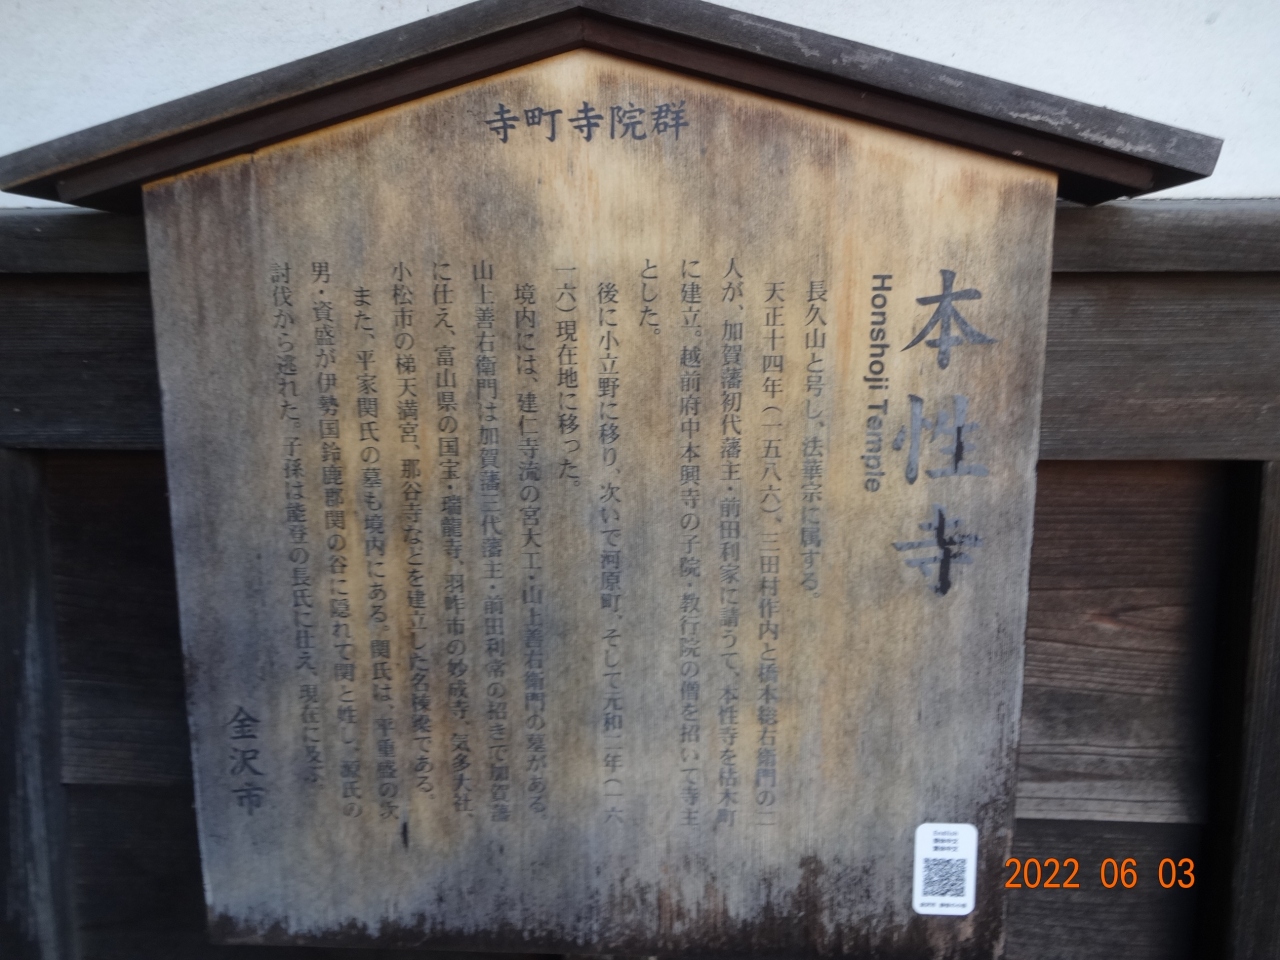 寺町寺院群
本性寺
Honshoji Temple
長久山と号し、法華宗に属する。
天正十四年(一五八六)、三田村作内と橋本総右衛門の二
人が、加賀藩初代藩主・前田利家に請うて、本性寺を枯木町
に建立。越前府中本興寺の子院・教行院の僧を招いて寺主
とした。
後に小立野に移り、次いで河原町、そして元和二年(一六
一六)現在地に移った。
境内には、建仁寺流の宮大工・山上善右衛門の墓がある。
山上善右衛門は加賀藩三代藩主・前田利常の招きで加賀藩
に仕え、富山県の国宝・瑞龍寺、羽咋市の妙成寺、気多大社、
小松市の梯天満宮、那谷寺などを建立した名棟梁である。
また、平家関氏の墓も境内にある。関氏は、平重盛の次
男・資盛が伊勢国鈴鹿郡関の谷に隠れて関と姓し、源氏の
討伐から逃れた。子孫は能登の長氏に仕え、現在に及ぶ。
金沢市
English
2022 06 03